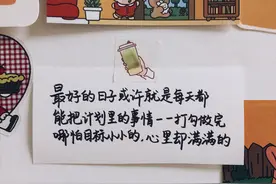 最好的日子或许就是每天都
能把计划里的事情一一打勾做完
哪怕目标小小的，心里却满满的